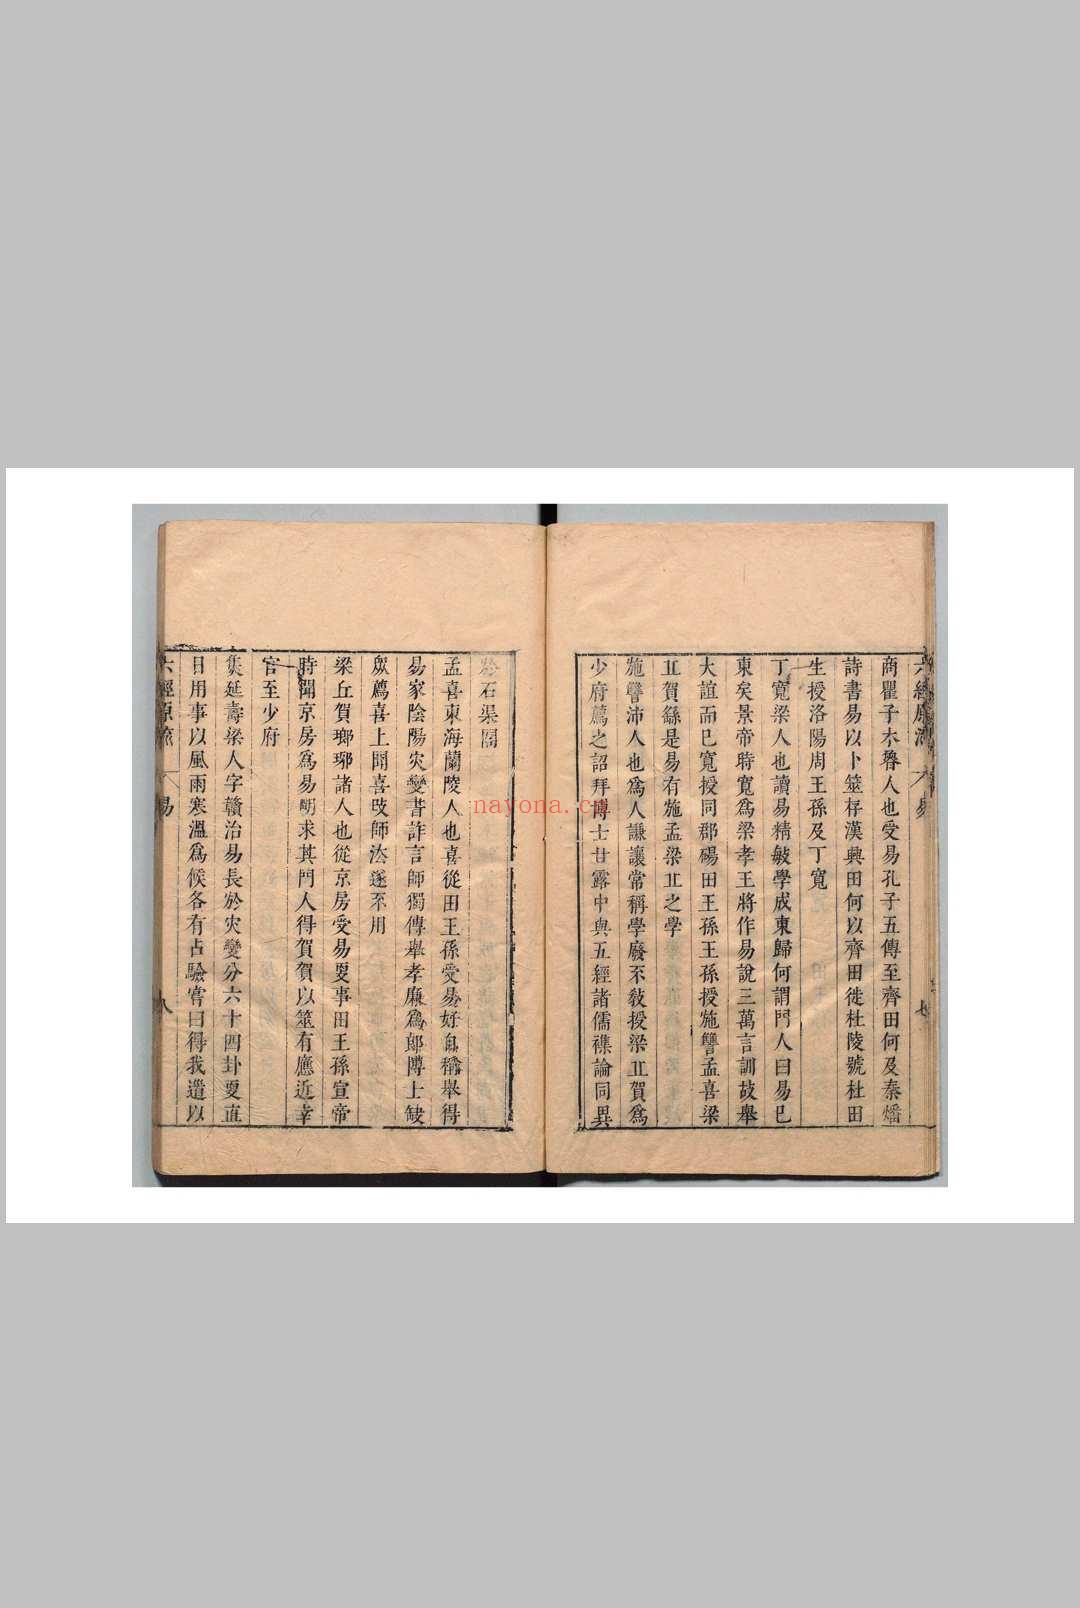 商瞿子木魯人也受易孔子五傳至齊田何及秦燔
詩書易以卜筮存漢興田何以齊田徙杜陵號杜田
生授洛陽周王孫及丁寬
丁寬梁人也讀易精敏學成東歸何謂門人曰易已
東矣景帝時寬為梁孝王將作易說三萬言訓故舉
大誼而已寬授同郡碭田王孫王孫授施讐孟喜梁
丠賀繇是易有施孟梁丠之學
施讐沛人也為人謙讓常稱學廢不敎授梁丠賀為
少府薦之詔拜博士甘露中與五經諸儒襍論同異
於石渠閣
孟喜東海蘭陵人也喜從田王孫受易好自稱舉得
易家陰陽灾變書詐言師獨傳舉孝廉為郎博士缺
眾薦喜上聞喜改師法遂不用
梁丘賀瑯琊諸人也從京房受易更事田王孫宣帝
時聞京房為易明求其門人得賀賀以筮有應近幸
官至少府
焦延壽梁人字贛治易長於灾變分六十四卦更直
日用事以風雨寒溫為候各有占驗嘗曰得我道以
六經原流
易
八
nayona.cn